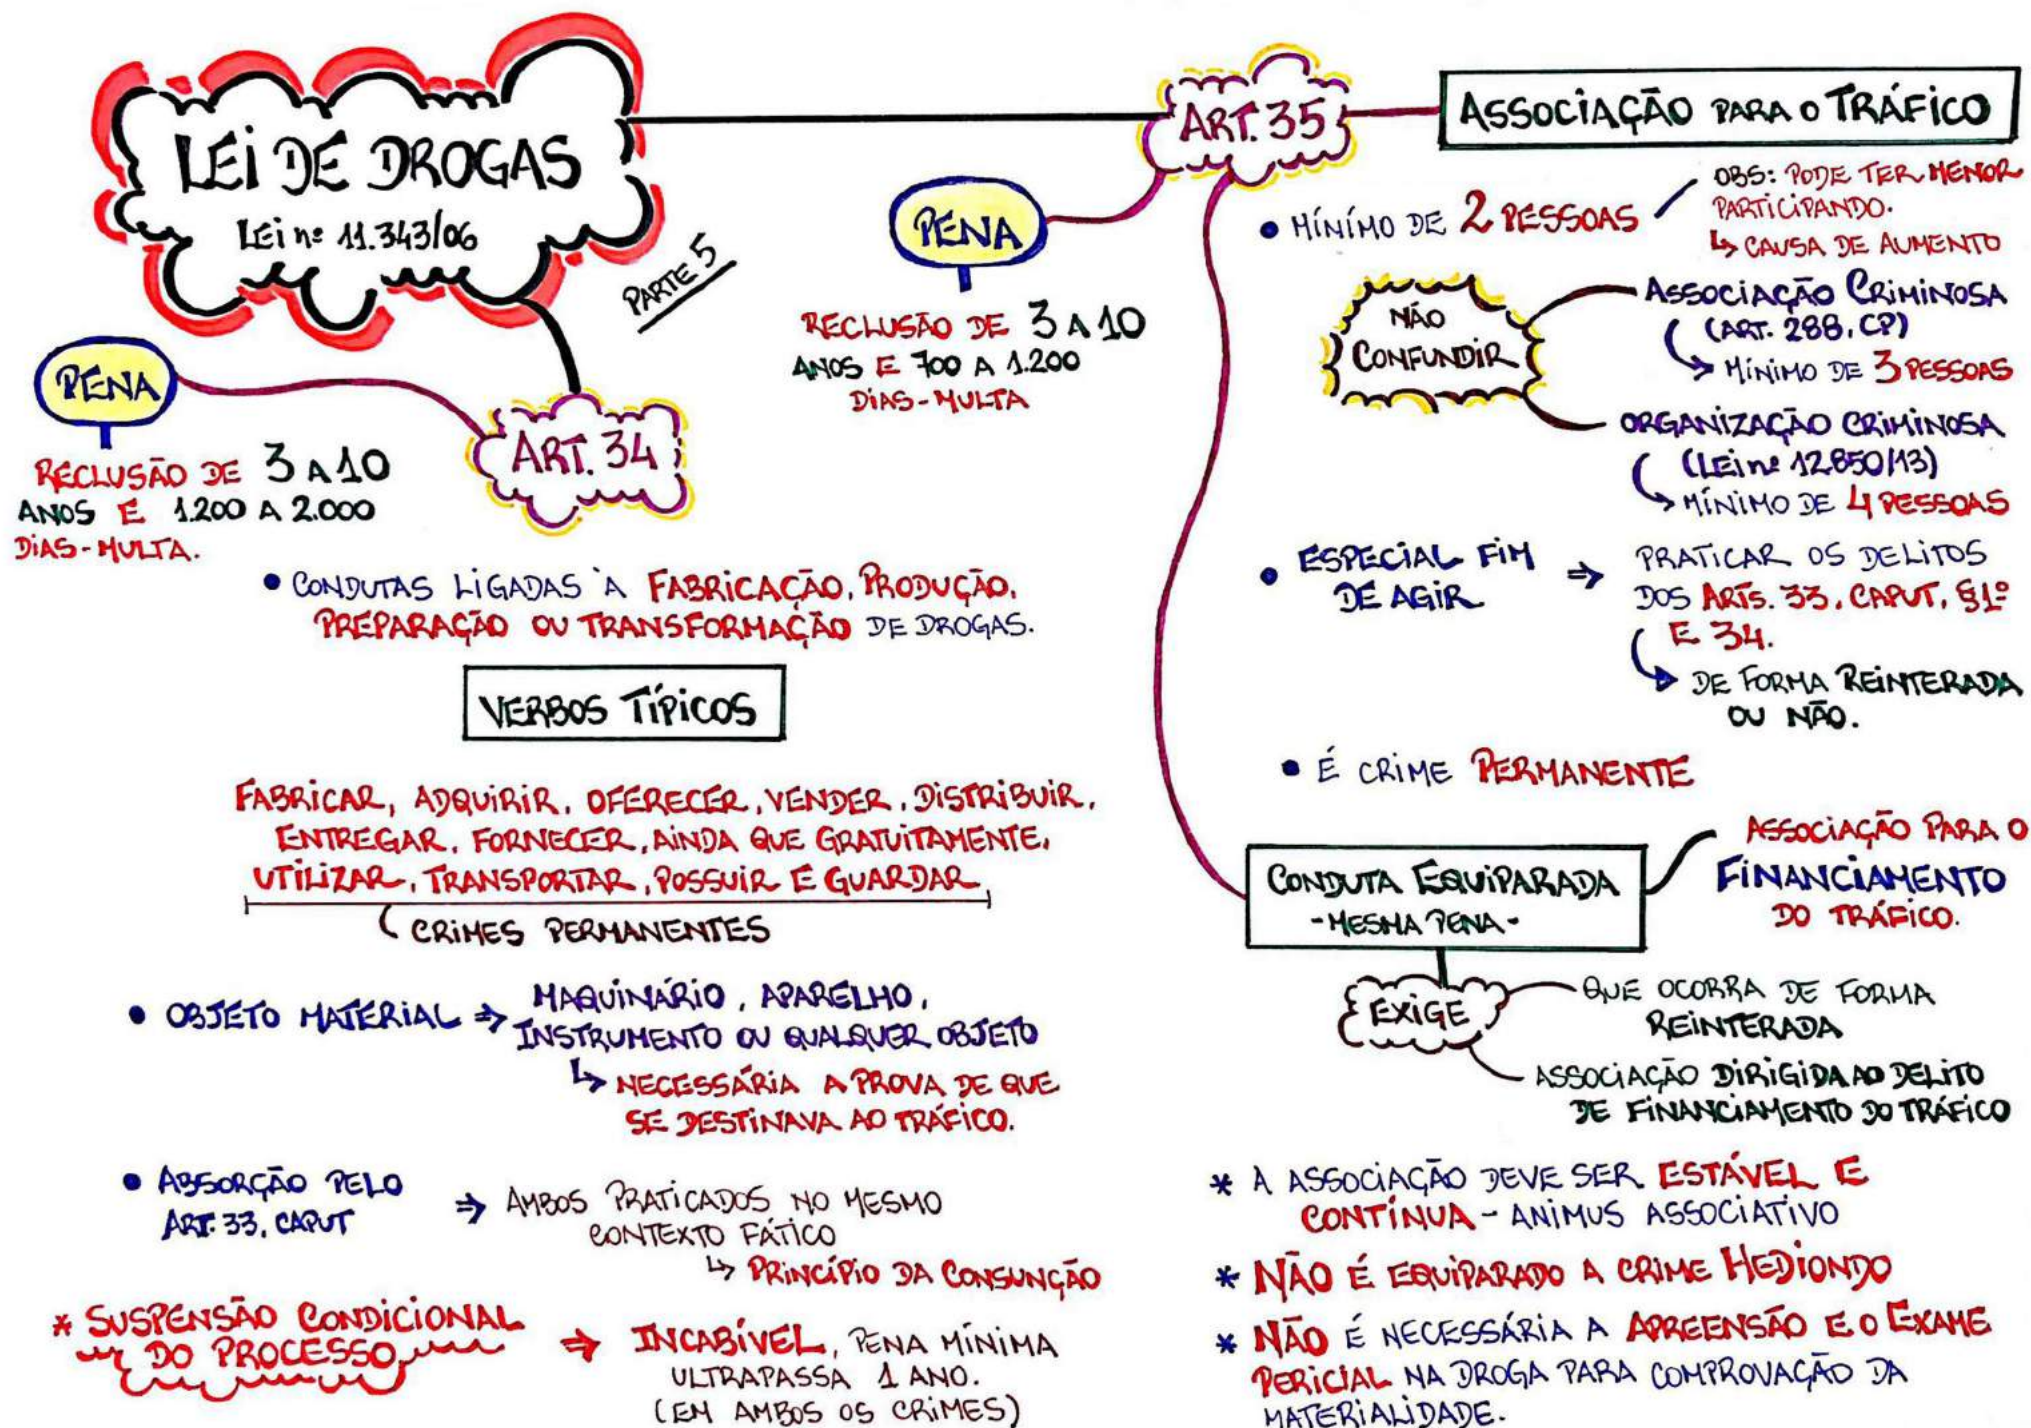 LEI DE DROGAS
LEI nº 11.343/06
PARTE 5
PENA
RECLUSÃO DE 3 A 10
ANOS E 1.200 A 2.000
DIAS-MULTA.
ART. 34
• CONDUTAS LIGADAS À FABRICAÇÃO, PRODUÇÃO,
PREPARAÇÃO OU TRANSFORMAÇÃO DE DROGAS.
VERBOS TÍPICOS
FABRICAR, ADQUIRIR, OFERECER, VENDER, DISTRIBUIR,
ENTREGAR, FORNECER, AINDA QUE GRATUITAMENTE,
UTILIZAR, TRANSPORTAR, POSSUIR E GUARDAR
CRIMES PERMANENTES
• OBJETO MATERIAL ⇒ MAQUINÁRIO, APARELHO,
INSTRUMENTO OU QUALQUER OBJETO
↳ NECESSÁRIA A PROVA DE QUE
SE DESTINAVA AO TRÁFICO.
• ABSORÇÃO PELO
ART. 33, CAPUT
⇒ AMBOS PRATICADOS NO MESMO
CONTEXTO FÁTICO
↳ PRINCÍPIO DA CONSUNÇÃO
* SUSPENSÃO CONDICIONAL
DO PROCESSO
⇒ INCABÍVEL, PENA MÍNIMA
ULTRAPASSA 1 ANO.
(EM AMBOS OS CRIMES)
ART. 35
PENA
RECLUSÃO DE 3 A 10
ANOS E 700 A 1.200
DIAS-MULTA
ASSOCIAÇÃO PARA O TRÁFICO
• MÍNIMO DE 2 PESSOAS
OBS: PODE TER MENOR
PARTICIPANDO.
↳ CAUSA DE AUMENTO
NÃO
CONFUNDIR
ASSOCIAÇÃO CRIMINOSA
(ART. 288, CP)
MÍNIMO DE 3 PESSOAS
ORGANIZAÇÃO CRIMINOSA
(LEI nº 12.850/13)
MÍNIMO DE 4 PESSOAS
• ESPECIAL FIM
DE AGIR
⇒ PRATICAR OS DELITOS
DOS ARTS. 33, CAPUT, §1º
E 34.
DE FORMA REINTERADA
OU NÃO.
• É CRIME PERMANENTE
CONDUTA EQUIPARADA
-MESMA PENA-
ASSOCIAÇÃO PARA O
FINANCIAMENTO
DO TRÁFICO.
EXIGE
QUE OCORRA DE FORMA
REINTERADA
ASSOCIAÇÃO DIRIGIDA AO DELITO
DE FINANCIAMENTO DO TRÁFICO
* A ASSOCIAÇÃO DEVE SER ESTÁVEL E
CONTÍNUA - ANIMUS ASSOCIATIVO
* NÃO É EQUIPARADO A CRIME HEDIONDO
* NÃO É NECESSÁRIA A APREENSÃO E O EXAME
PERICIAL NA DROGA PARA COMPROVAÇÃO DA
MATERIALIDADE.